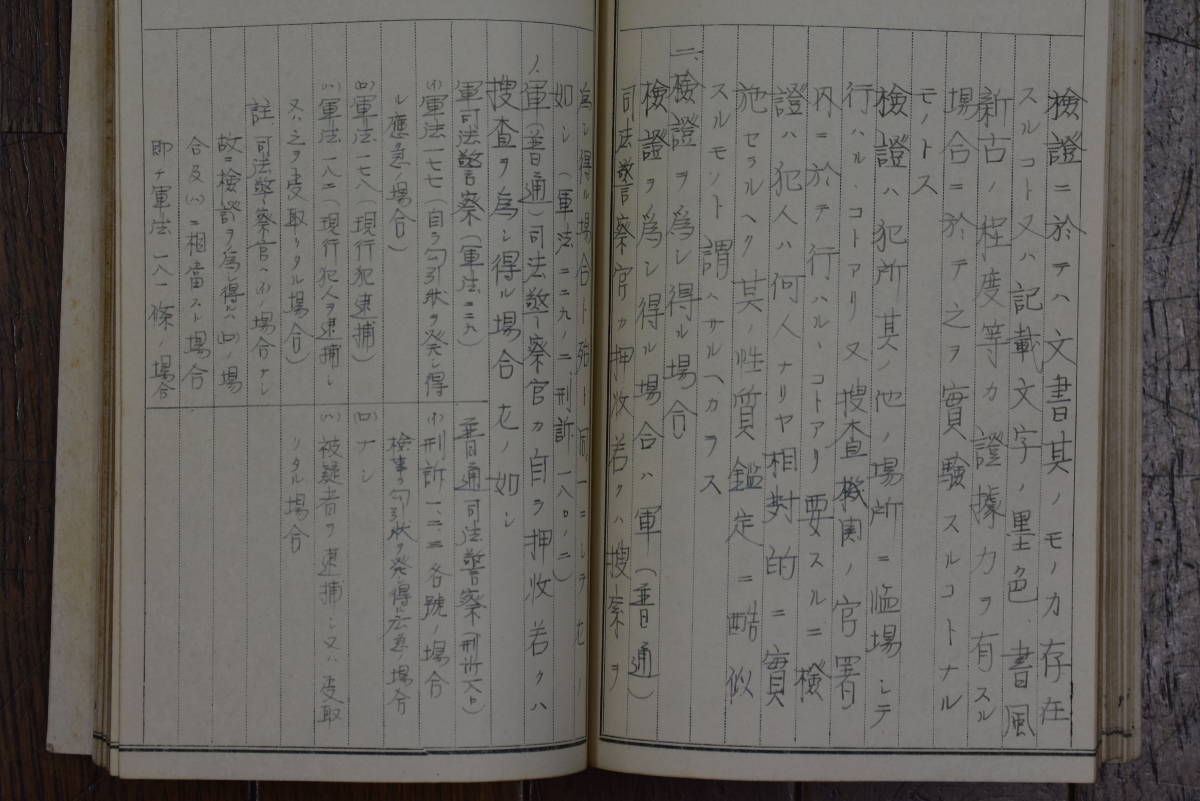 檢證ニ於テハ文書其ノモノカ存在
スルコト又ハ記載文字ノ墨色、書風
新古ノ程度等カ證據力ヲ有スル
場合ニ於テ之ヲ實驗スルコトナル
モノトス
檢證ハ犯所其ノ他ノ場所ニ臨場シテ
行ハルコトアリ又搜査機関ノ官署
内ニ於テ行ハル、コトアリ要スルニ檢
證ハ犯人ハ何人ナリヤ相對的ニ實
施セラルヘク其ノ性質鑑定ニ酷似
スルモノト謂ハサルヘカラス
二、檢證ヲ為シ得ル場合
檢證ヲ為シ得ル場合ハ軍(普通)
司法警察官カ押收若クハ搜索ヲ
為シ得ル場合ト殆ト同一ニシテ左ノ
如シ(軍法二二九ノ二、刑訴一八〇ノ二)
ノ、軍(普通)司法警察官カ自ラ押收若クハ
搜査ヲ為シ得ル場合左ノ如シ
軍司法警察(軍法二二九)
(イ)軍法一七七(自ラ勾引狀ヲ発シ得
シ應急ノ場合)
(ロ)軍法一七八(現行犯逮捕)
(ハ)軍法一八二(現行犯人ヲ逮捕シ
又ハ之ヲ受取リタル場合)
註 司法警察官ハ(イ)ノ場合ナシ
故ニ檢證ヲ為シ得ルハ(ロ)ノ場
合及(ハ)ニ相當スル場合
即チ軍法一八一條ノ場合
普通司法警察(刑訴一八〇)
(イ)刑訴一二三各號ノ場合
檢事カ勾引狀ヲ発シ得ル応急ノ場合
(ロ)ナシ
(ハ)被疑者ヲ逮捕シ又ハ受取
リタル場合